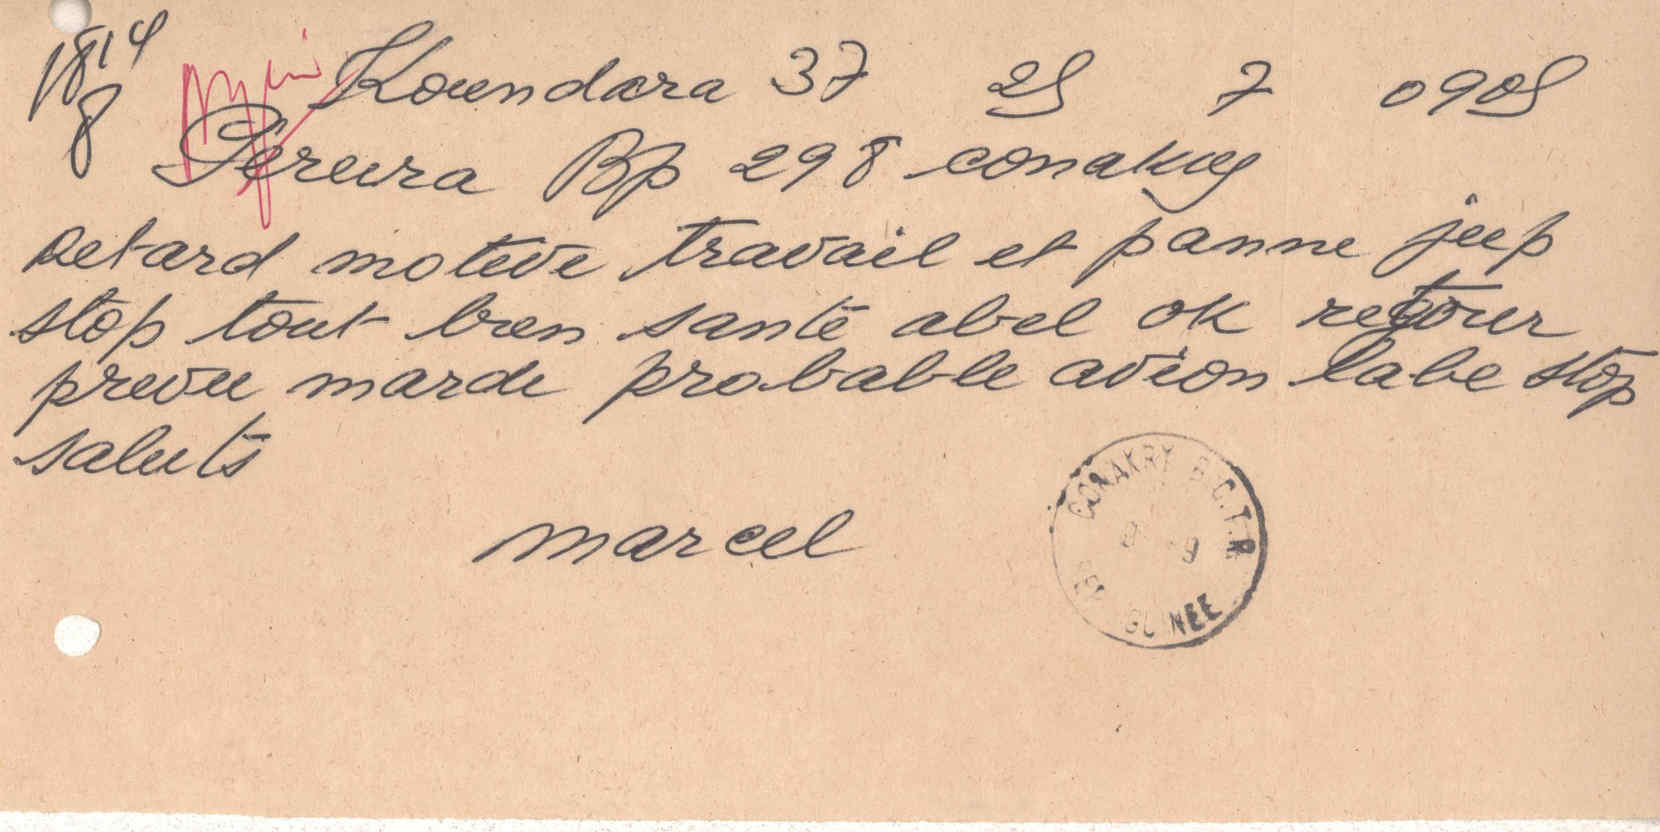 1814
8
Koundara 37 25 7 0905
Pereira Bp 298 conakry
Retard motive travail et panne jeep
stop tout bien santé abel ok retour
prevu mardi probable avion labe stop
saluts
marcel
CONAKRY B.C.T.R
GUINEE